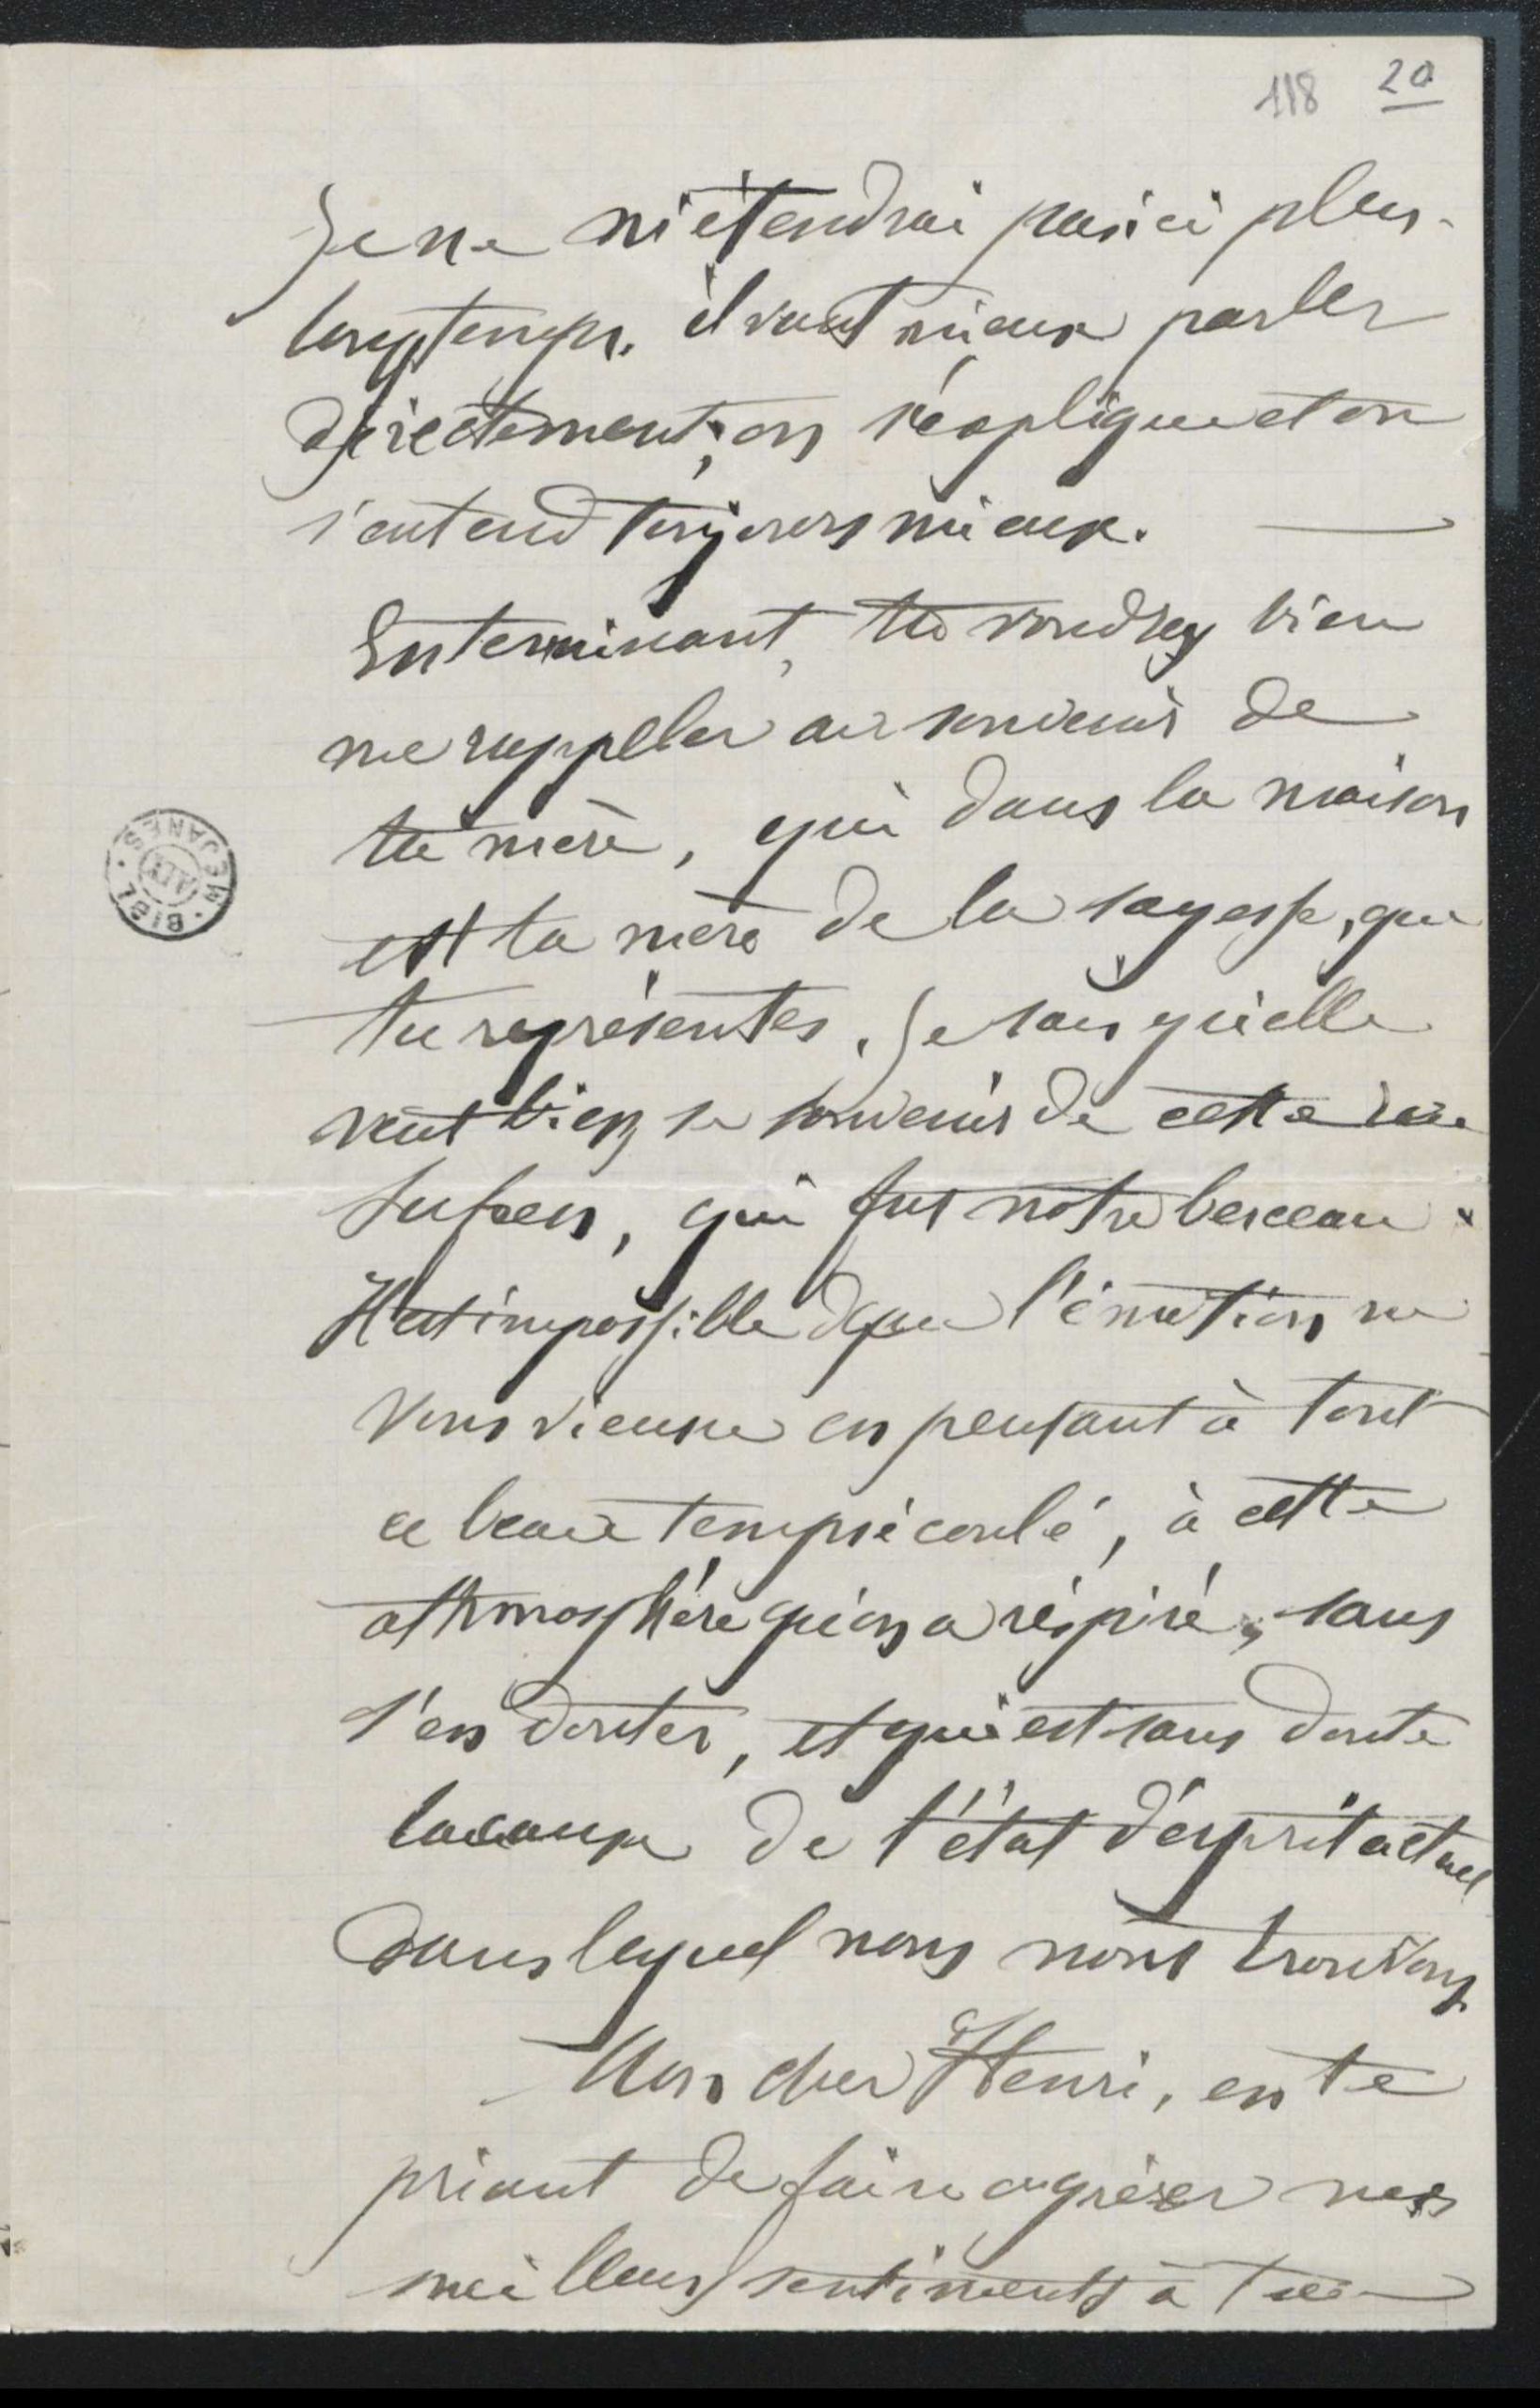 118 20
Je ne m'étendrai pas ici plus
longtemps. il vaut mieux parler
directement; on s'explique et on
s'entend toujours mieux.
En terminant, tu voudras bien
me rappeler au souvenir de
ta mère, qui dans la maison
est la mère de la sagesse, que
tu représentes. Je sais qu'elle
veut bien se souvenir de cette rue
qui fut notre berceau.
Il est impossible que l'émotion ne
vous vienne en pensant à tout
ce beau temps écoulé, à cette
athmosphère qu'on a réspiré, sans
s'en douter, et qui est sans doute
la cause de l'état d'ésprit actuel
dans lequel nous nous trouvons
Mon cher Henri, en te
priant de faire agréer mes
meilleurs sentiments à ta
BIBL. MEJANES
AIX